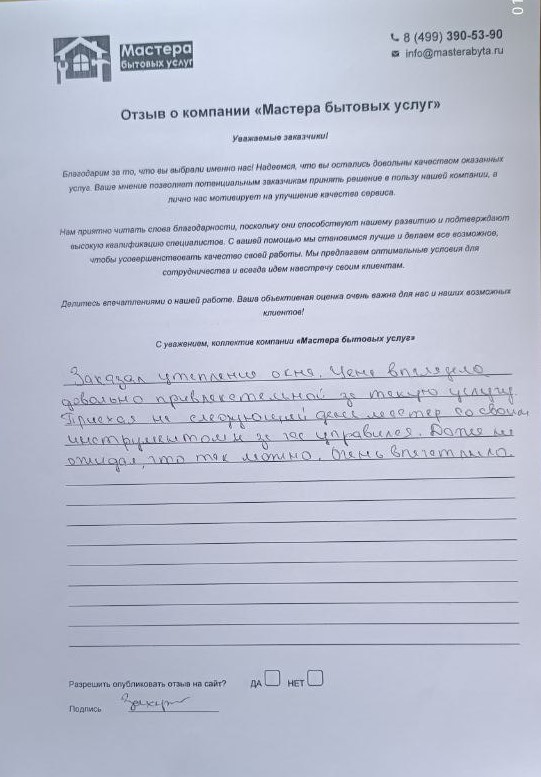 01
Мастера
бытовых услуг
8 (499) 390-53-90
info@masterabyta.ru
Отзыв о компании «Мастера бытовых услуг»
Уважаемые заказчики!
Благодарим за то, что вы выбрали именно нас! Надеемся, что вы остались довольны качеством оказанных
услуг. Ваше мнение позволяет потенциальным заказчикам принять решение в пользу нашей компании, а
лично нас мотивирует на улучшение качества сервиса.
Нам приятно читать слова благодарности, поскольку они способствуют нашему развитию и подтверждают
высокую квалификацию специалистов. С вашей помощью мы становимся лучше и делаем все возможное,
чтобы усовершенствовать качество своей работы. Мы предлагаем оптимальные условия для
сотрудничества и всегда идем навстречу своим клиентам.
Делитесь впечатлениями о нашей работе. Ваша объективная оценка очень важна для нас и наших возможных
клиентов!
С уважением, коллектив компании «Мастера бытовых услуг»
Заказал утепление окна. Цена выглядела
довольно привлекательной за такую услугу
Приехал на следующий день мастер со своим
инструментом и за час управился. Даже не
ожидал, что так можно. Очень впечатлило.
Разрешить опубликовать отзыв на сайт? ДА НЕТ
Подпись